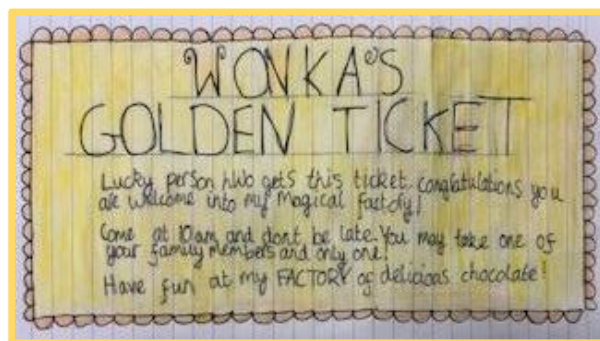 WONKA'S
GOLDEN TICKET
Lucky person who gets this ticket congratulations you
are welcome into my magical factory!
Come at 10am and dont be late. You may take one of
your family members and only one!
Have fun at my FACTORY of delicious chocolate!